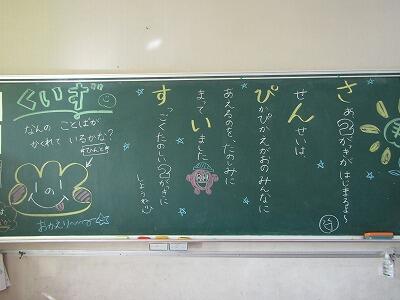 さあ2がっきが はじまるよ〜
せんせいは、
ぴかぴかえがおのみんなに
あえるのを たのしみに
まっていました
すっごくたのしい2がっきに
しようね
くいず
なんの ことばが
かくれて いるかな?
おかえり〜〜